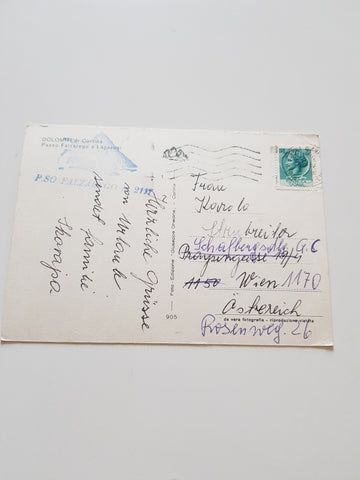 DOLOMITI di Cortina
Passo Falzarego e Lagazuoi
P.SO FALZAREGO 2117
Herzliche Grüsse
vom Urlaub
sendet Familie
Skorajsa
Foto - Edizione Ghedina - Cortina
905
Frau
Karola
Streibreiter
Schafbergsdlg. G.C
1150
Wien 1170
Österreich
Rosenweg. 26
da vera fotografia - riproduzione vietata